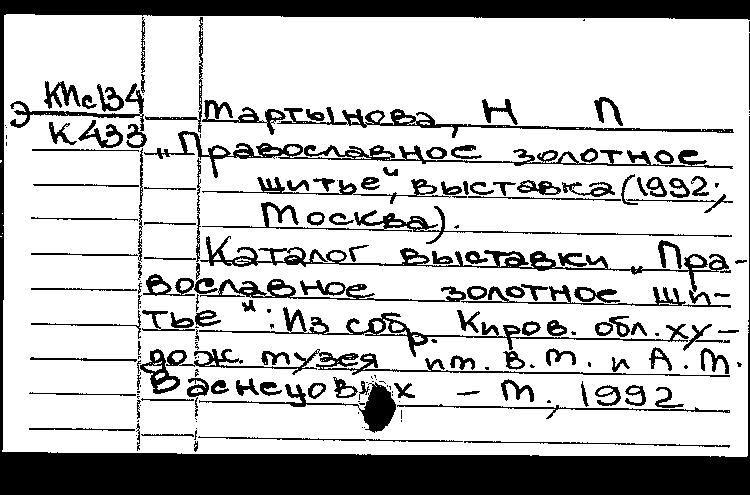 КПс134
Э
К433
Мартынова, Н П
„Православное золотное
шитье", выставка (1992;
Москва).
Каталог выставки „Пра-
вославное золотное ши-
тье": Из собр. Киров. обл. ху-
дож. музея им. В.М. и А.М.
Васнецовых – М., 1992.